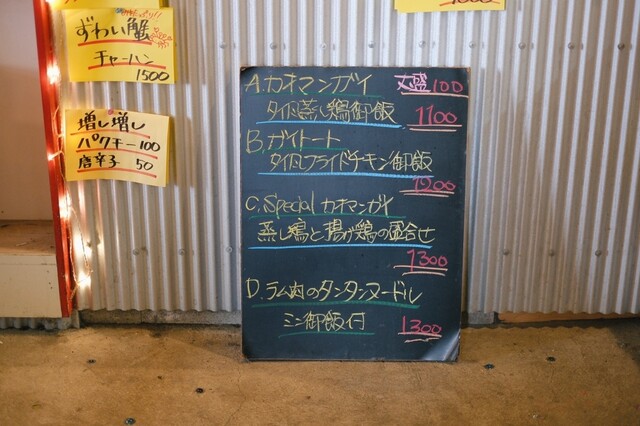 ずわい蟹
チャーハン
1500
増し増し
パクチー100
唐辛子 50
A.カオマンガイ 大盛100
タイ式蒸し鶏御飯 1100
B.ガイトート
タイ式フライドチキン御飯
1200
C.Special カオマンガイ
蒸し鶏と揚げ鶏の盛合せ
1300
D.ラム肉のタンタンヌードル
ミニ御飯付 1300